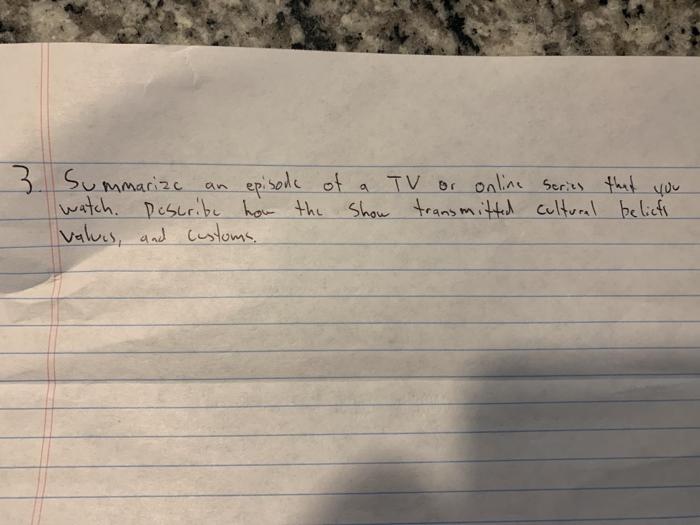 3. Summarize an episode of a TV or online series that you
watch. Describe how the show transmitted cultural beliefs
values, and customs.